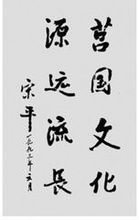 莒国文化
源远流长
宋平
一九九三年六月